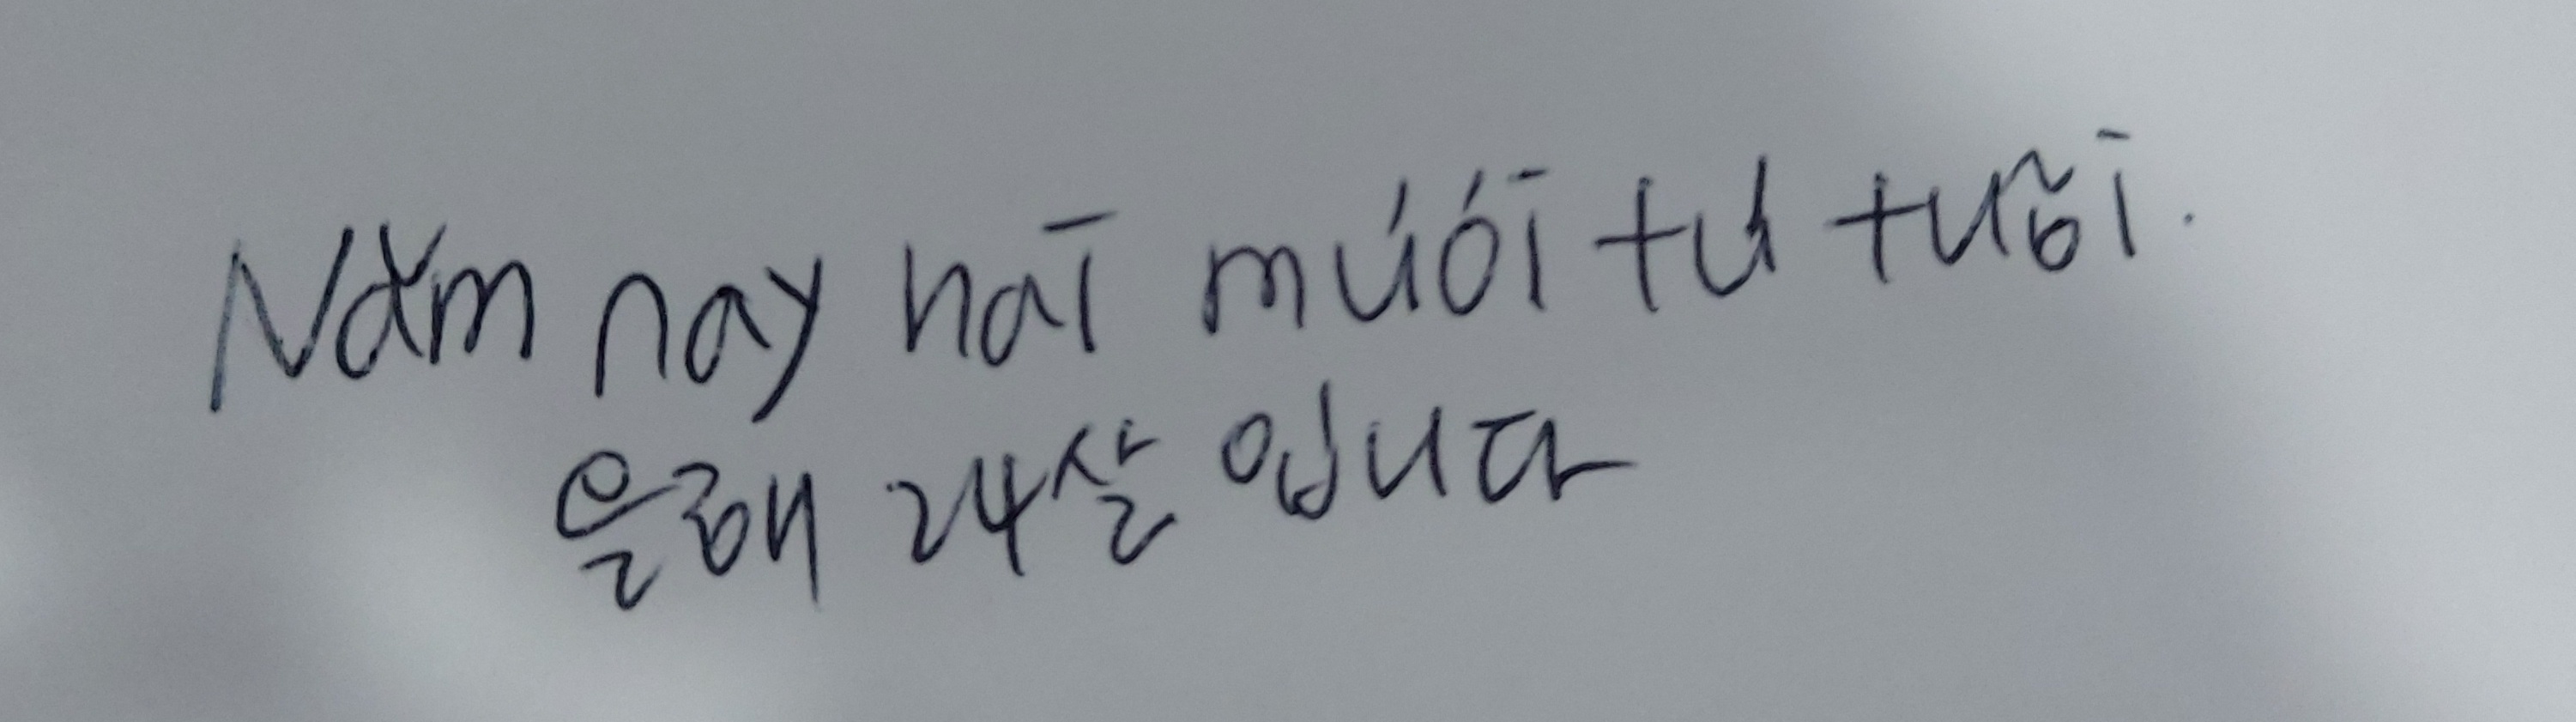 Năm nay hai mươi tư tuổi.
올해 24살 입니다